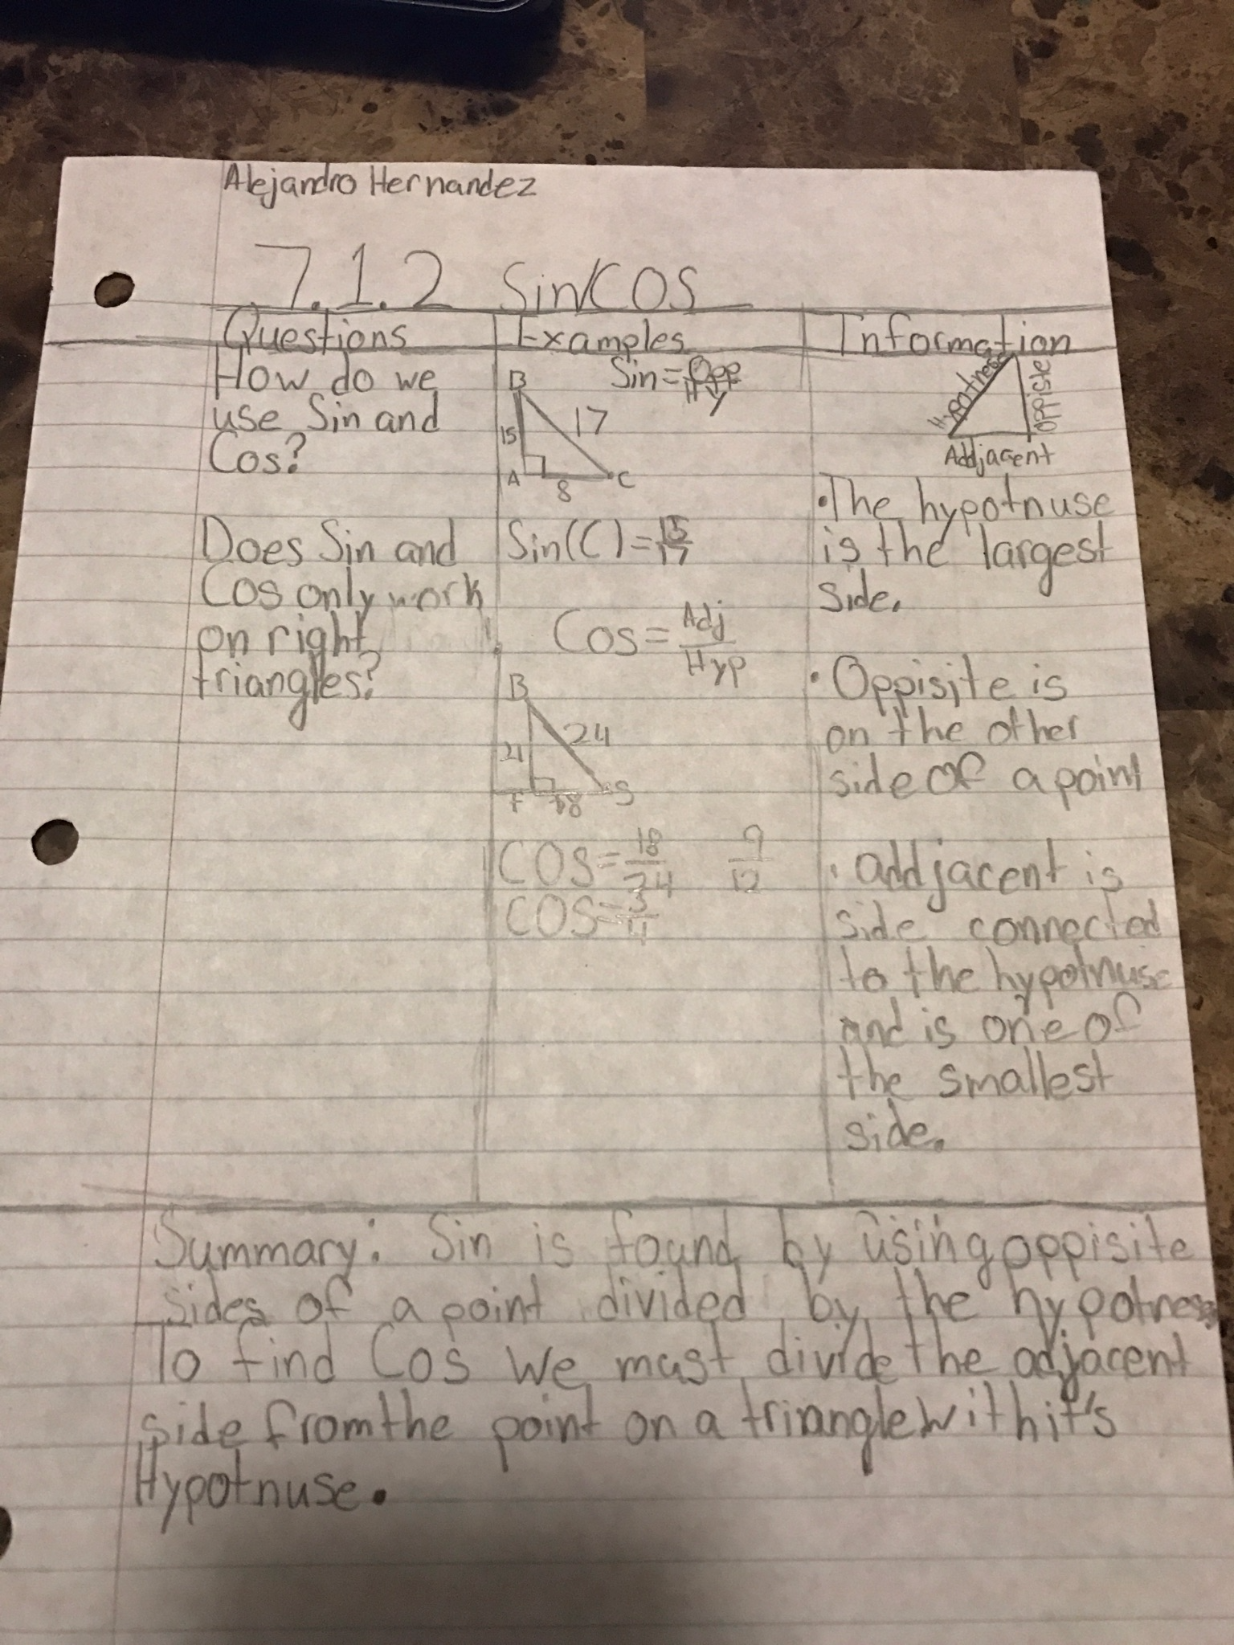 Alejandro Hernandez
7.1.2 Sin/COS
Questions
How do we
use Sin and
Cos?
Does Sin and
Cos only work
on right
triangles?
Examples
Sin = Opp
Hy
B
15
17
A
8
C
Sin(C) = 15
17
Cos = Adj
Hyp
B
21
24
F
18
S
COS = 18
24
9
12
COS = 3
4
Information
Oppisite
Addjacent
• The hypotnuse
is the largest
side.
• Oppisite is
on the other
side of a point
• addjacent is
side connected
to the hypotnuse
and is one of
the smallest
side.
Summary: Sin is found by using oppisite
sides of a point divided by the hypotness
To find Cos We must divide the adjacent
side from the point on a triangle with it's
Hypotnuse.